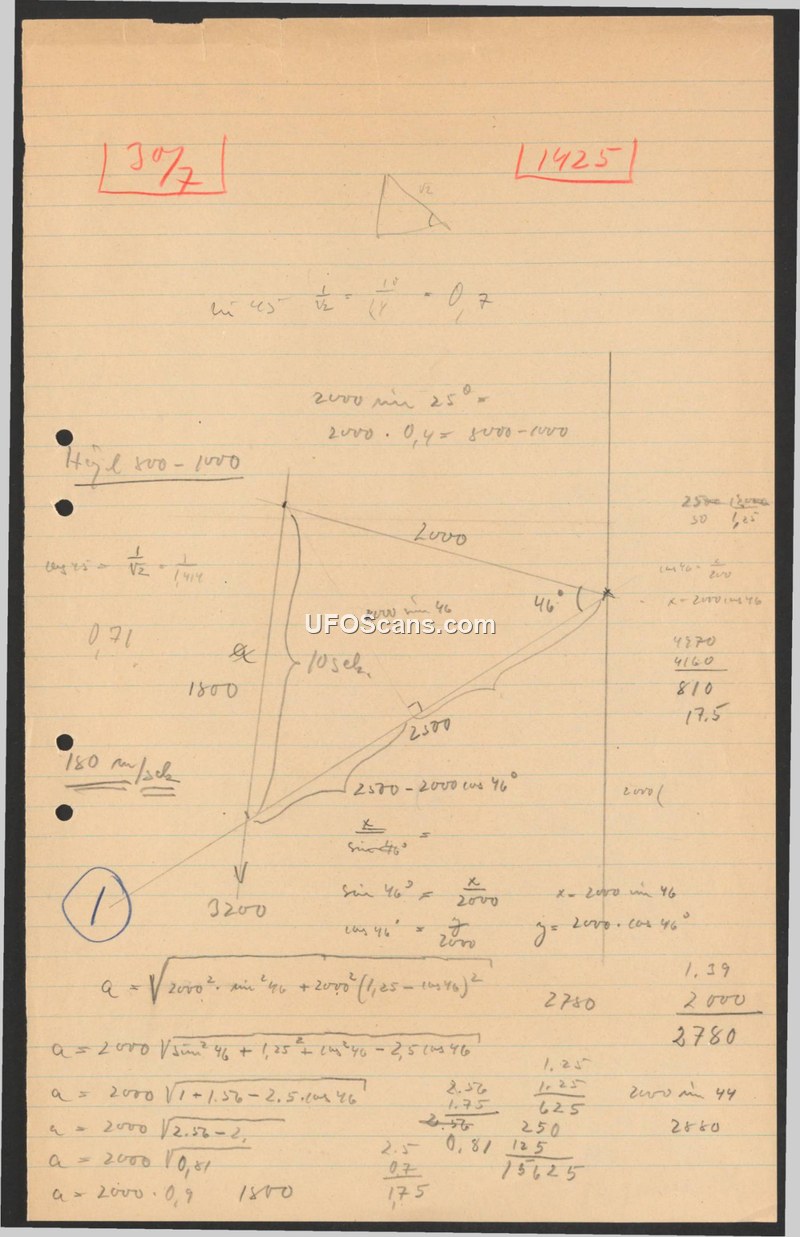 30/7
1425
√2
sin 45 1/√2 = 10/14 = 0,7
2000 sin 25° =
2000 . 0,4 = 8000-1000
Höjd 800 - 1000
2000
cos 45 = 1/√2 = 1/1,414
cos 46 = x/200
46°
x = 2000 cos 46
2000 sin 46
UFOScans.com
0,71
4970
4160
810
17.5
10 sek.
1800
2500
180 m/sek
2500 - 2000 cos 46°
2000(
x/sin 46° =
1
3200
sin 46° = x/2000 x = 2000 sin 46
cos 46° = y/2000 y = 2000 . cos 46°
a = √2000² . sin² 46 + 2000² (1,25 - cos 46)²
2780
1.39
2000
2780
a = 2000 √sin² 46 + 1,25² + cos² 46 - 2,5 cos 46
a = 2000 √1 + 1.56 - 2.5 . cos 46
2.56
1.75
2.56
0,81
1.25
1.25
625
250
125
15625
2000 sin 44
2880
a = 2000 √2.56 - 2,
a = 2000 √0,81
2.5
0,7
1,75
a = 2000 . 0,9 1800